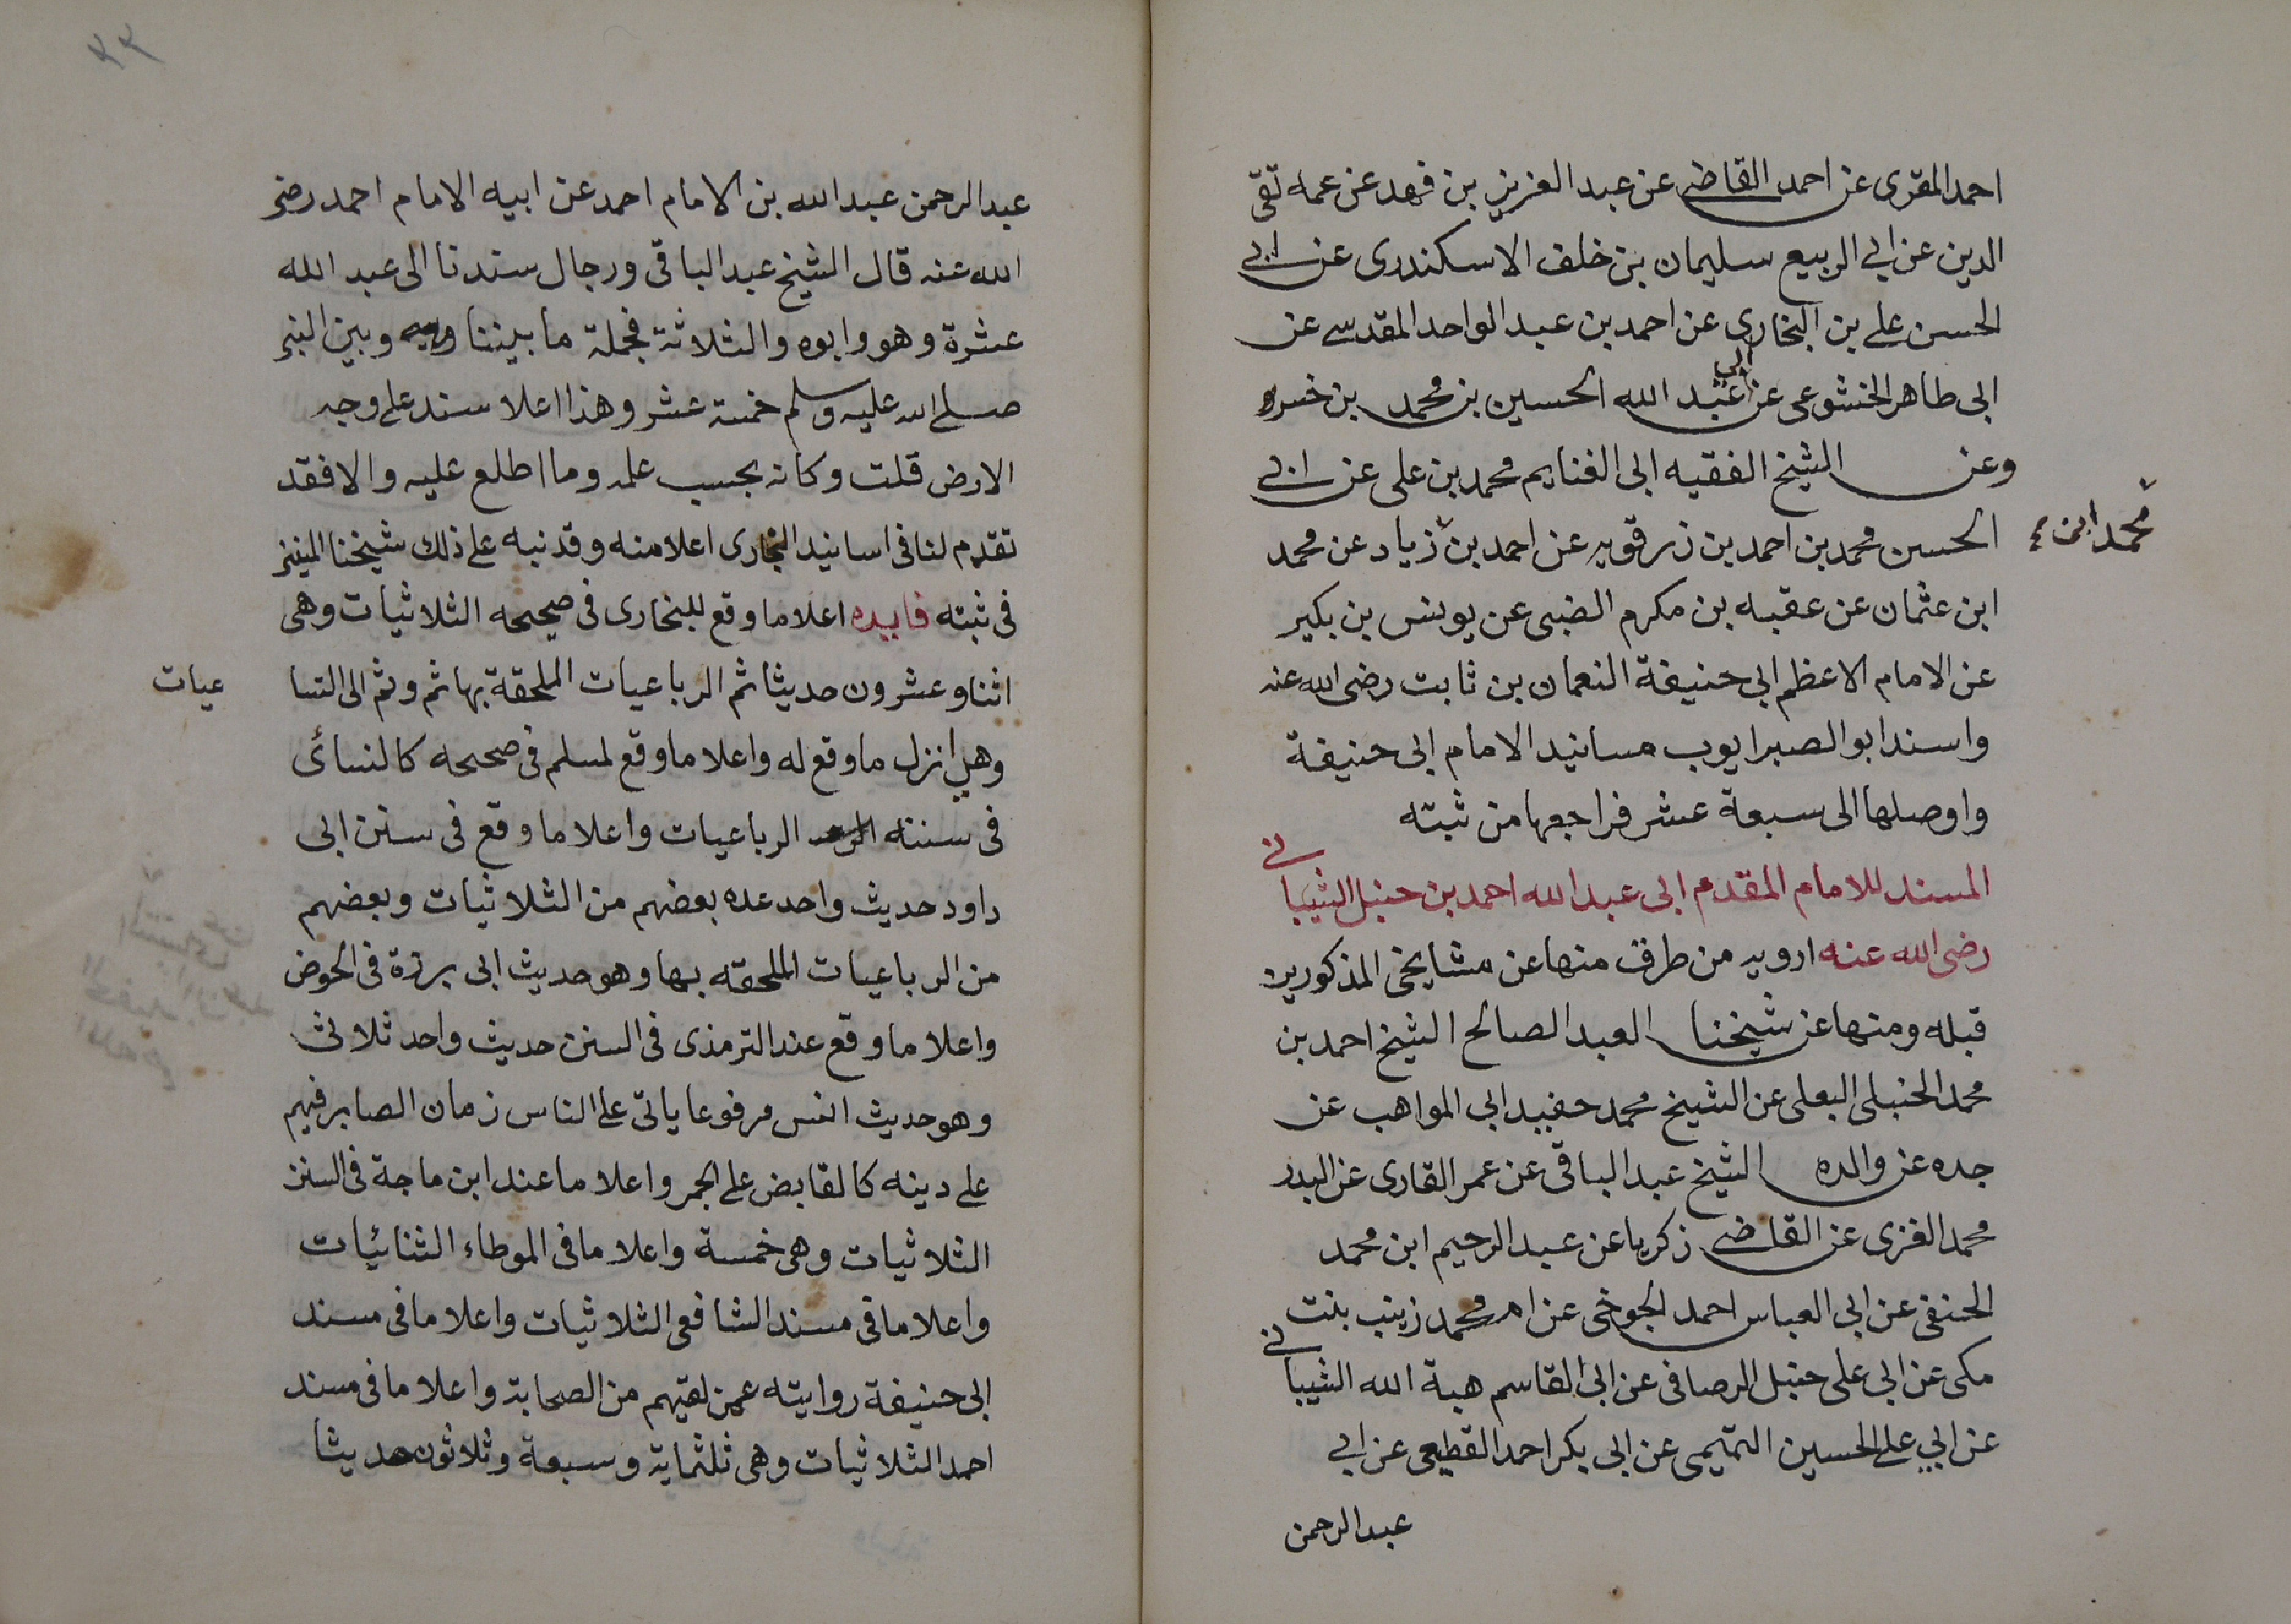 احمد المقرى عن احمد القاضى عن عبد العزيز بن فهد عن عمه تقى
الدين عن ابى الربيع سليمان بن خلف الاسكندرى عن ابى
الحسن على بن البخارى عن احمد بن عبد الواحد المقدسى عن
ابى طاهر الخشوعى عن ابى عبد الله الحسين بن محمد بن خسرو
وعن الشيخ الفقيه ابى الغنايم محمد بن على عن ابى
الحسن محمد بن احمد بن زرقويه عن احمد بن زياد عن محمد
محمد ابن
ابن عثمان عن عقبه بن مكرم الضبى عن يونس بن بكير
عن الامام الاعظم ابى حنيفة النعمان بن ثابت رضى الله عنه
واسند ابو الصبر ايوب مسانيد الامام ابى حنيفة
واوصلها الى سبعة عشر فراجعها من ثبته
المسند للامام المقدم ابى عبد الله احمد بن حنبل الشيبانى
رضى الله عنه ارويه من طرق منها عن مشايخى المذكورين
قبله ومنها عن شيخنا العبد الصالح الشيخ احمد بن
محمد الحنبلى البعلى عن الشيخ محمد حفيد ابى المواهب عن
جده عن والده الشيخ عبد الباقى عن عمر القارى عن البدر
محمد الغزى عن القاضى زكريا عن عبد الرحيم ابن محمد
الحنفى عن ابى العباس احمد الجوخى عن ام محمد زينب بنت
مكى عن ابى على حنبل الرصافى عن ابى القاسم هبة الله الشيبانى
عن ابي على الحسين التميمى عن ابى بكر احمد القطيعى عن ابى
عبد الرحمن
عبد الرحمن عبد الله بن الامام احمد عن ابيه الامام احمد رضى
الله عنه قال الشيخ عبد الباقى ورجال سندنا الى عبد الله
عشرة وهو وابوه والثلاثة فجملة ما بيننا وبين النبى
صلى الله عليه وسلم خمسة عشر وهذا اعلا سند على وجه
الارض قلت وكانه بحسب علمه وما اطلع عليه والا فقد
تقدم لنا فى اسانيد البخارى اعلا منه وقد نبه على ذلك شيخنا المنينى
فى ثبته فايده اعلا ما وقع للبخارى فى صحيحه الثلاثيات وهى
اثنا وعشرون حديثا ثم الرباعيات الملحقة بها ثم وثم الى التسا عيات
وهى انزل ما وقع له واعلا ما وقع لمسلم فى صحيحه كالنسائى
فى سننه الرباعيات واعلا ما وقع فى سنن ابى
داود حديث واحد عده بعضهم من الثلاثيات وبعضهم
من الرباعيات الملحقه بها وهو حديث ابى برزة فى الحوض
واعلا ما وقع عند الترمذى فى السنن حديث واحد ثلاثى
وهو حديث انس مرفوعا ياتى على الناس زمان الصابر فيهم
على دينه كالقابض على الجمر واعلا ما عند ابن ماجة فى السنن
الثلاثيات وهى خمسة واعلا ما فى الموطاء الثنائيات
واعلا ما فى مسند الشافعى الثلاثيات واعلا ما فى مسند
ابى حنيفة روايته عمن لقيهم من الصحابة واعلا ما فى مسند
احمد الثلاثيات وهى ثلثماية وسبعة وثلاثون حديثا